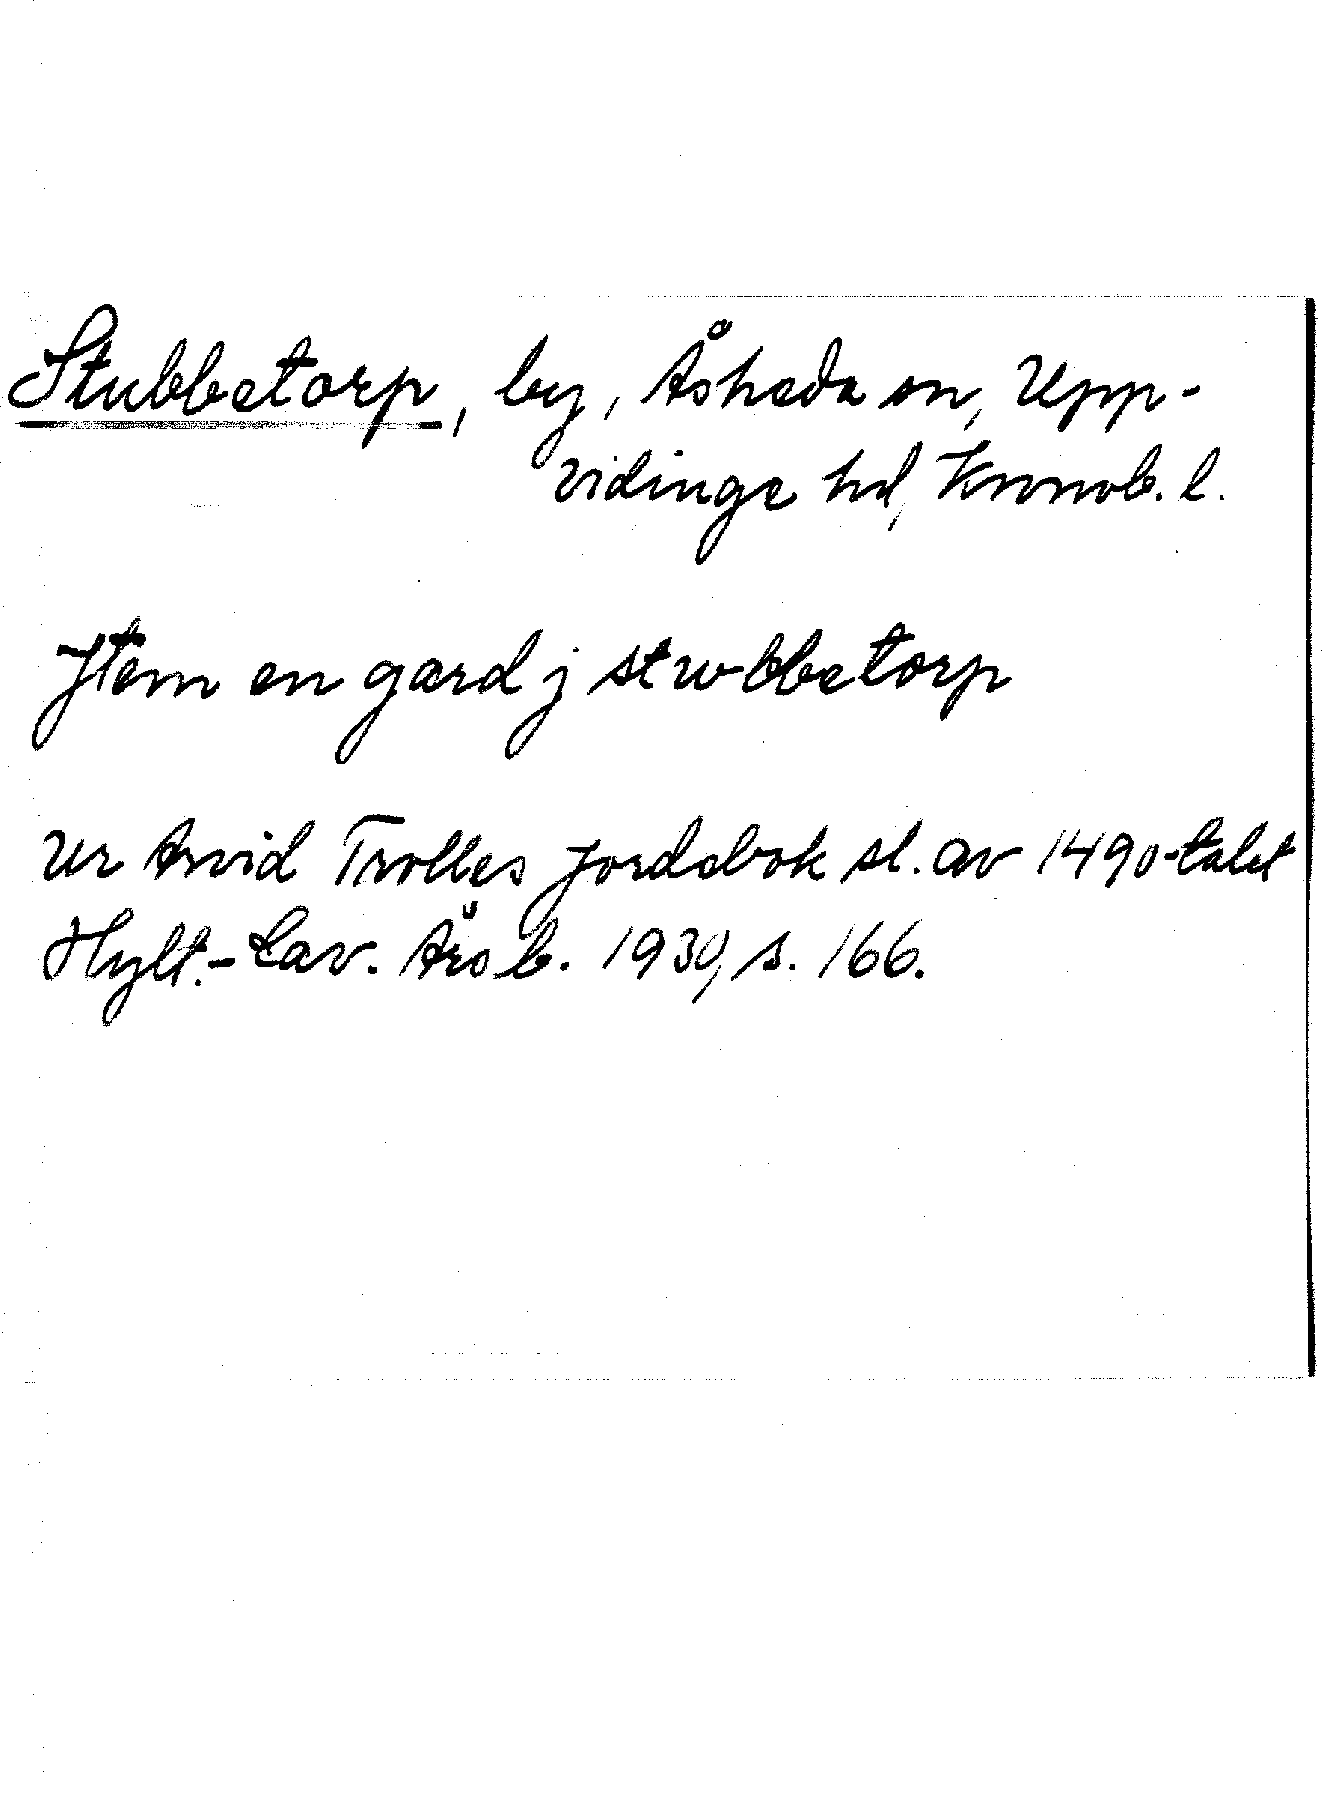 Stubbetorp, by, Åsheda sn, Upp-
vidinge hd, Kronob. l.
Jtem en gard j stwbbetorp
Ur Arvid Trolles jordebok sl. av 1490-talet
Hylt.-Cav. Årsb. 1930, s. 166.